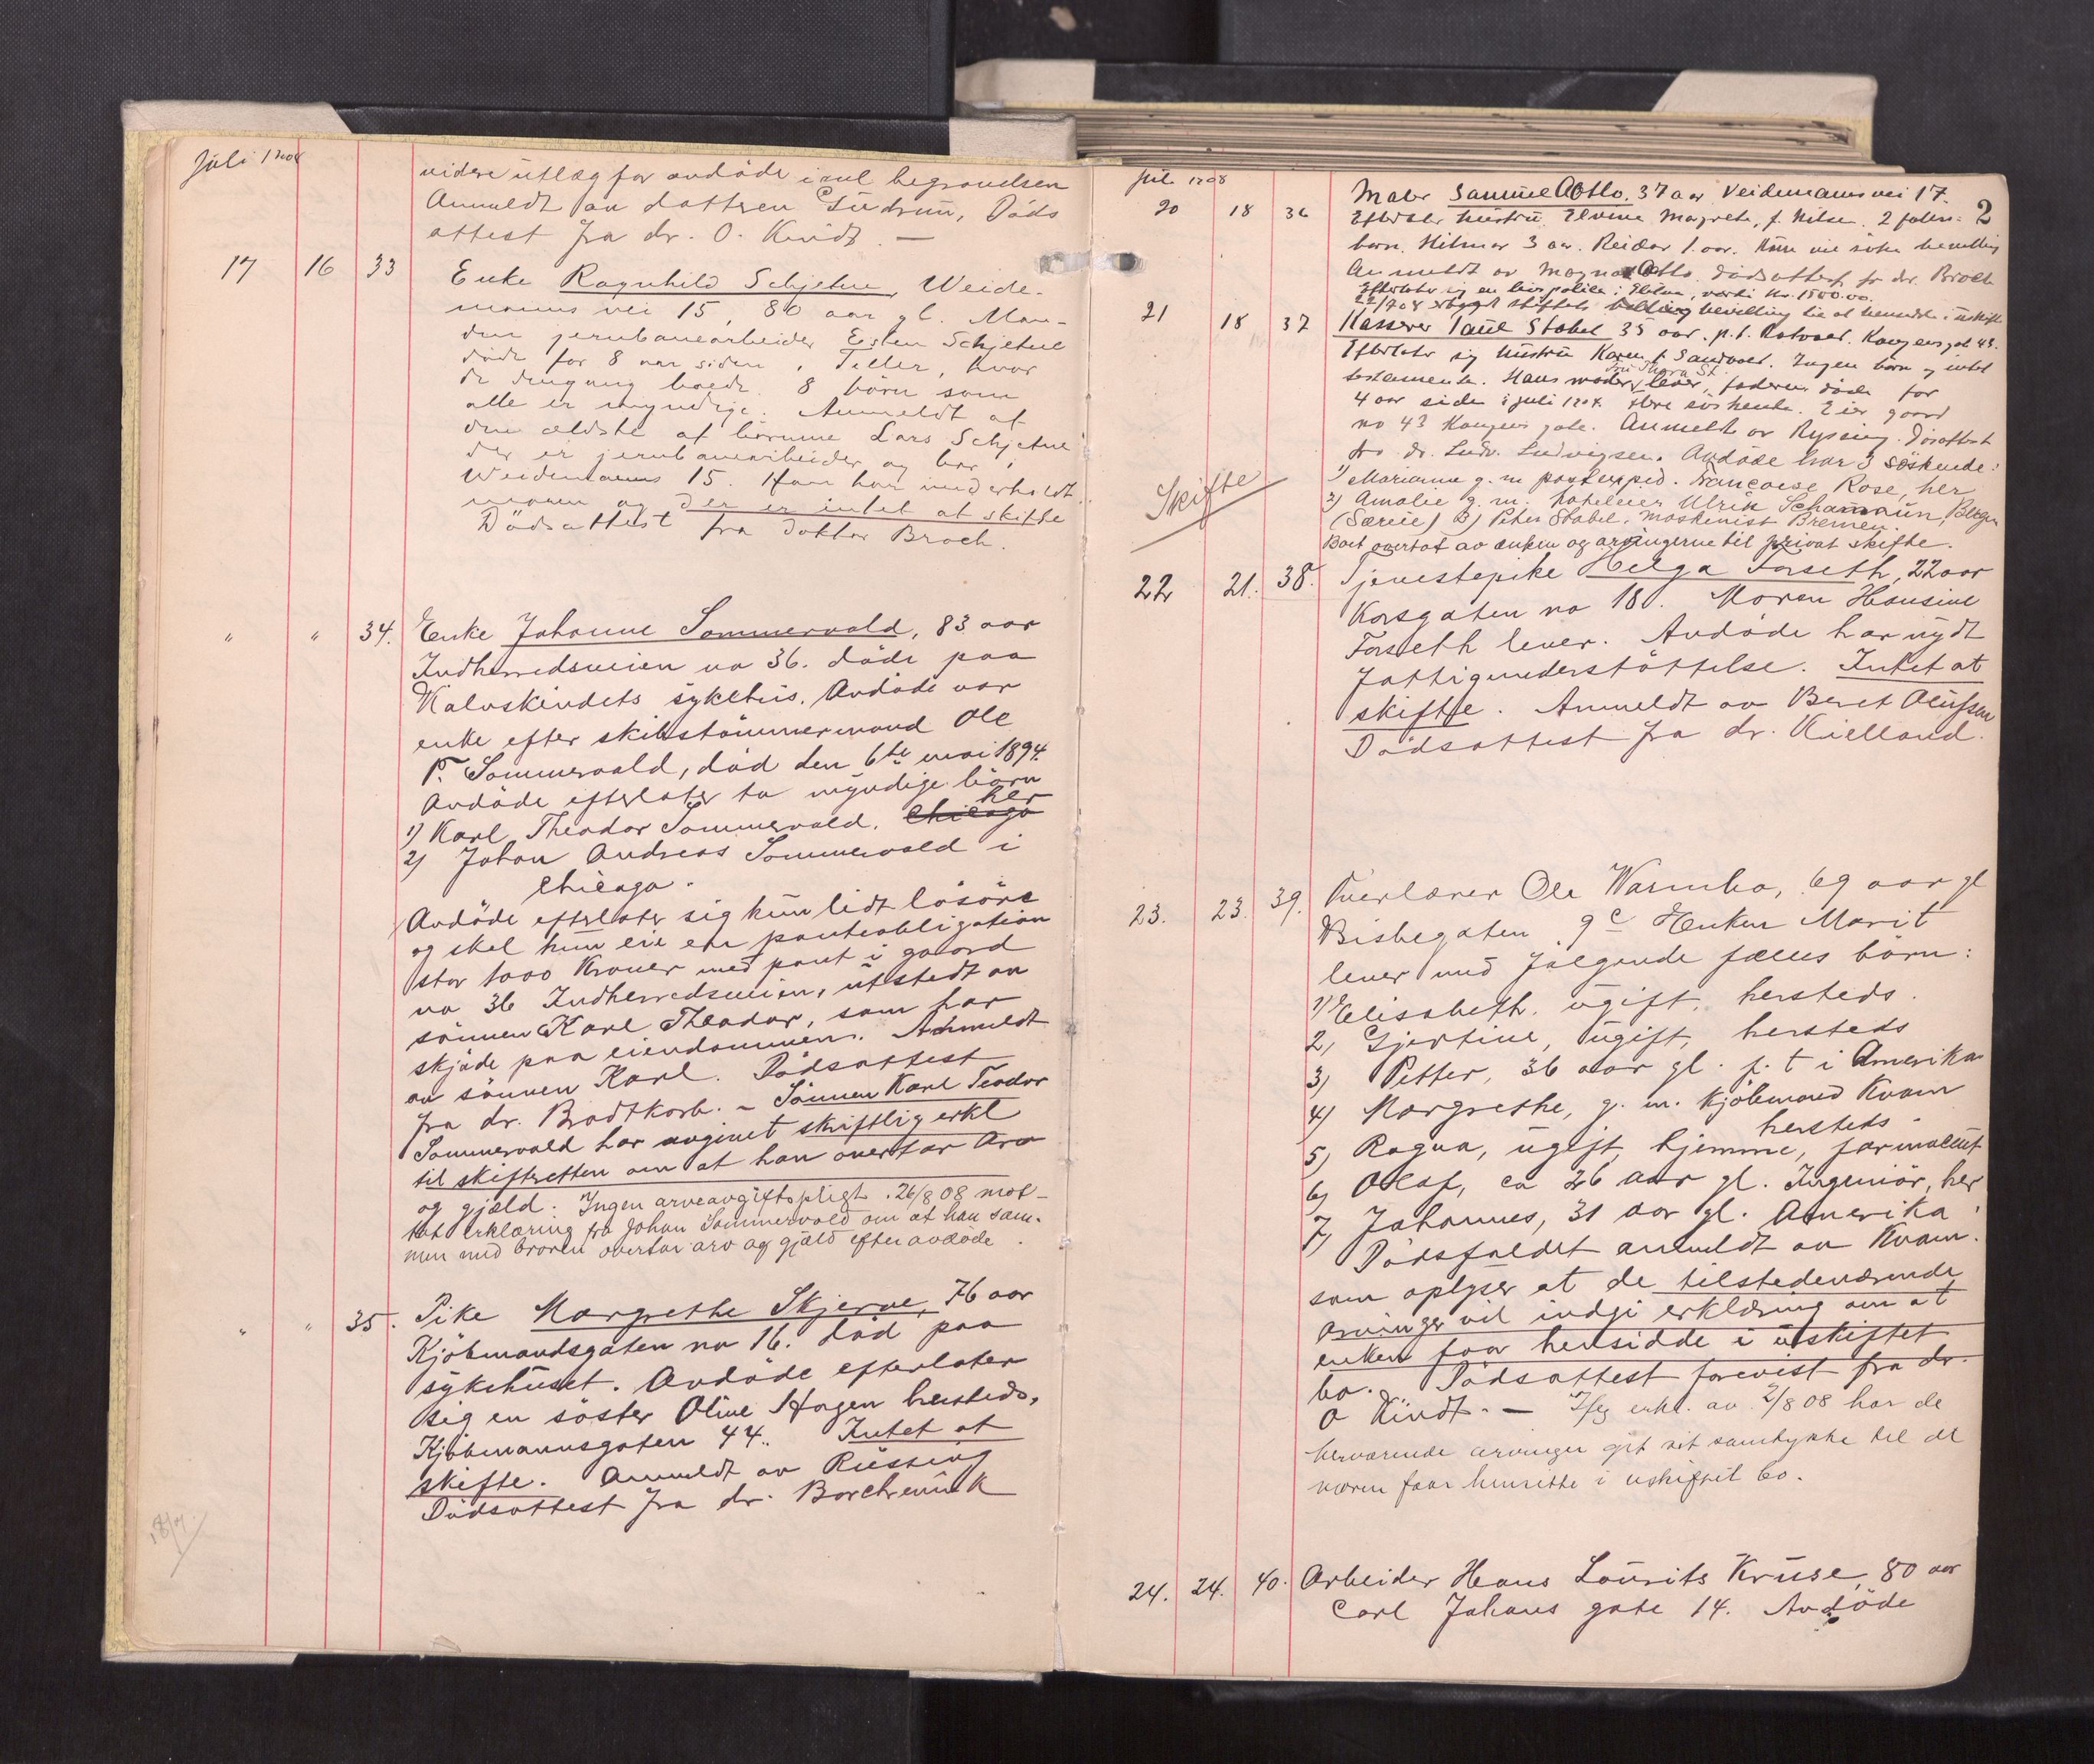 Juli 1908
videre utlæg for avdöde i anl begravelsen
Anmeldt av dattren Gudrun, Döds
attest fra dr. O. Kindt. —
17 16 33
Enke Ragnhild Schjetne, Weide-
manns vei 15, 80 aar gl. Man-
den jernbanearbeider Esten Schjetne
döde for 8 aar siden i Tiller, hvor
de dengang boede. 8 börn som
alle er myndige. Anmeldt af
den ældste af börnene Lars Schjetne
der er jernbanearbeider og bor i
Weidemanns 15. Han har underholdt
moren og der er intet at skifte
Dödsattest fra Doktor Broch.
" " 34. Enke Johanne Sommervold, 83 aar
Indherredsveien no 36. döde paa
Kalvskindets sykehus. Avdöde var
enke efter skibstömmermand Ole
P. Sommervold, död den 6te mai 1894.
Avdöde efterlater to myndige börn
1) Karl Theodor Sommervold. Chicago her
2) Johan Andreas Sommervold i
Chicago.
Avdöde efterlater sig kun lidt lösöre
og skal hun eie en panteobligation
stor 1000 Kroner med pant i gaard
no 36 Indherredsveien, utstedt av
sönnen Karl Theodor, som har
skjöde paa eiendommen. Anmeldt
av sönnen Karl. Dödsattest
fra dr. Brodtkorb. - Sönnen Karl Teodor
Sommervold har avgivet skriftlig erkl
til skifteretten om at han overtar Arv
og gjæld. Ingen arveavgiftspligt. 26/8 08 mot-
tat erklæring fra Johan Sommervold om at han sam-
men med broren overtar arv og gjæld efter avdöde.
" " 35. Pike Margrethe Skjerve, 76 aar
Kjöbmandsgaten no 16. död paa
sykehuset. Avdöde efterlater
sig en söster Oline Hagen hersteds,
Kjöbmannsgaten 44. Intet at
skifte. Anmeldt av Rüssing
Dödsattest fra dr. Borchrevink
18/7
Juli 1908
2
20 18 36 Maler Samuel Otto, 37 aar Veidemanns vei 17.
Efterlater hustru Elvine Magrete, f. Nilsen. 2 fælles-
barn. Hilmar 3 aar. Reidar 1 aar. Kone vil söke bevilling
Anmeldt av Magnus Otto. Dödsattest fr dr. Broch
Efterlater sig en livspolice i Hhv, værdi kr. 1500.00.
22/7 08 utbragt skiftets bevilling til at hensidde i uskifte
21 18 37 Kasserer Paul Stabel 35 aar. p.t. Kongensgt 43.
Efterlater sig hustru Karen f. Sandvold. Ingen barn og intet
testamente. Hans moder fru Thora St. lever, faderen döde for
4 aar siden i juli 1904. Flere söskende. Eier gaard
no 43 Kongens gate. Anmeldt av Ryssing. Dösattest
fra dr. Ludv. Ludvigsen. Avdöde har 3 söskende:
1) Marianne g. m postexped. Francoise Rose, her
2) Amalie g. m. hoteleier Ulrik Schamaun, Bergen
3) Peter Stabel, maskinist Bremen.
Skifte
Boet overtat av enken og arvingerne til privat skifte.
22 21. 38. Tjenestepike Helga Forseth, 22 aar
Korsgaten no 18. Moren Hansine
Forseth lever. Avdöde har nydt
fattigunderstöttelse. Intet at
skifte. Anmeldt av Beret Olufsen
Dödsattest fra dr. Kielland.
23. 23. 39. Ole Warmbo, 69 aar gl
Bisbegaten 9c Enken Marit
lever med fölgende fælles börn:
1) Elisabeth. ugift, hersteds.
2) Gjertine, ugift, hersteds
3) Petter, 36 aar gl. p. t i Amerika
4) Margrethe, g. m. kjöbmand Kvam
hersteds
5) Ragna, ugift hjemme,
6) Olaf, ca 26 aar gl. Ingeniör, her
7) Johannes, 31 aar gl. Amerika.
Dödsfaldet anmeldt av Kvam.
som oplyser at de tilstedeværende
arvinger vil indgi erklæring om at
enken faar hensidde i uskiftet
bo. Dödsattest forevist fra dr.
O Kindt. — Ifög erkl. av 2/8 08 har de
herværende arvinger git sit samtykke til at
moren faar hensitte i uskiftet bo.
24. 24. 40. Arbeider Hans Lourits Kruse, 80 aar
Carl Johans gate 14. Avdöde